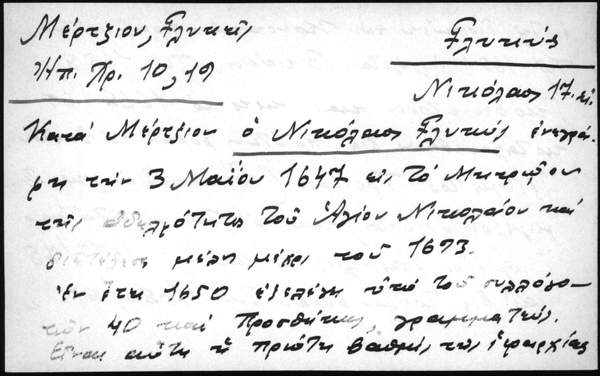 Μέρτζιον, Γλυκεῖς
Ἠπ. Χρ. 10, 19
Γλυκύς
Νικόλαος 17. αἰ.
Κατά Μέρτζιον ὁ Νικόλαος Γλυκύς ἐνεγρά-
φη τήν 3 Μαΐου 1647 εἰς τό Μητρῷον
τῆς ἀδελφότητος τοῦ Ἁγίου Νικολάου καί
διετέλεσε μέλος μέχρι τοῦ 1693.
ἐν ἔτει 1650 ἐξελέγη ὑπό τοῦ συλλόγο-
τῶν 40 καί Προσθήκης, γραμματεύς.
Εἶναι αὕτη ἡ πρώτη βαθμίς τῆς ἱεραρχίας